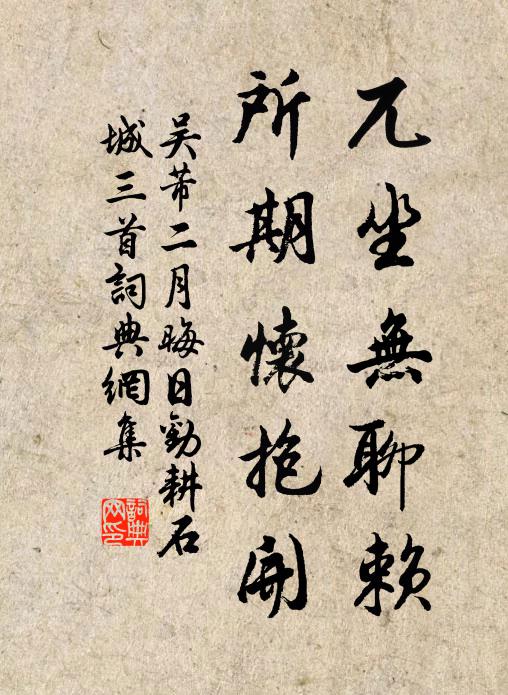 兀坐無聊賴
所期懷抱開
吴芾二月晦日勸耕石
城三首詞典網集
詞典网印